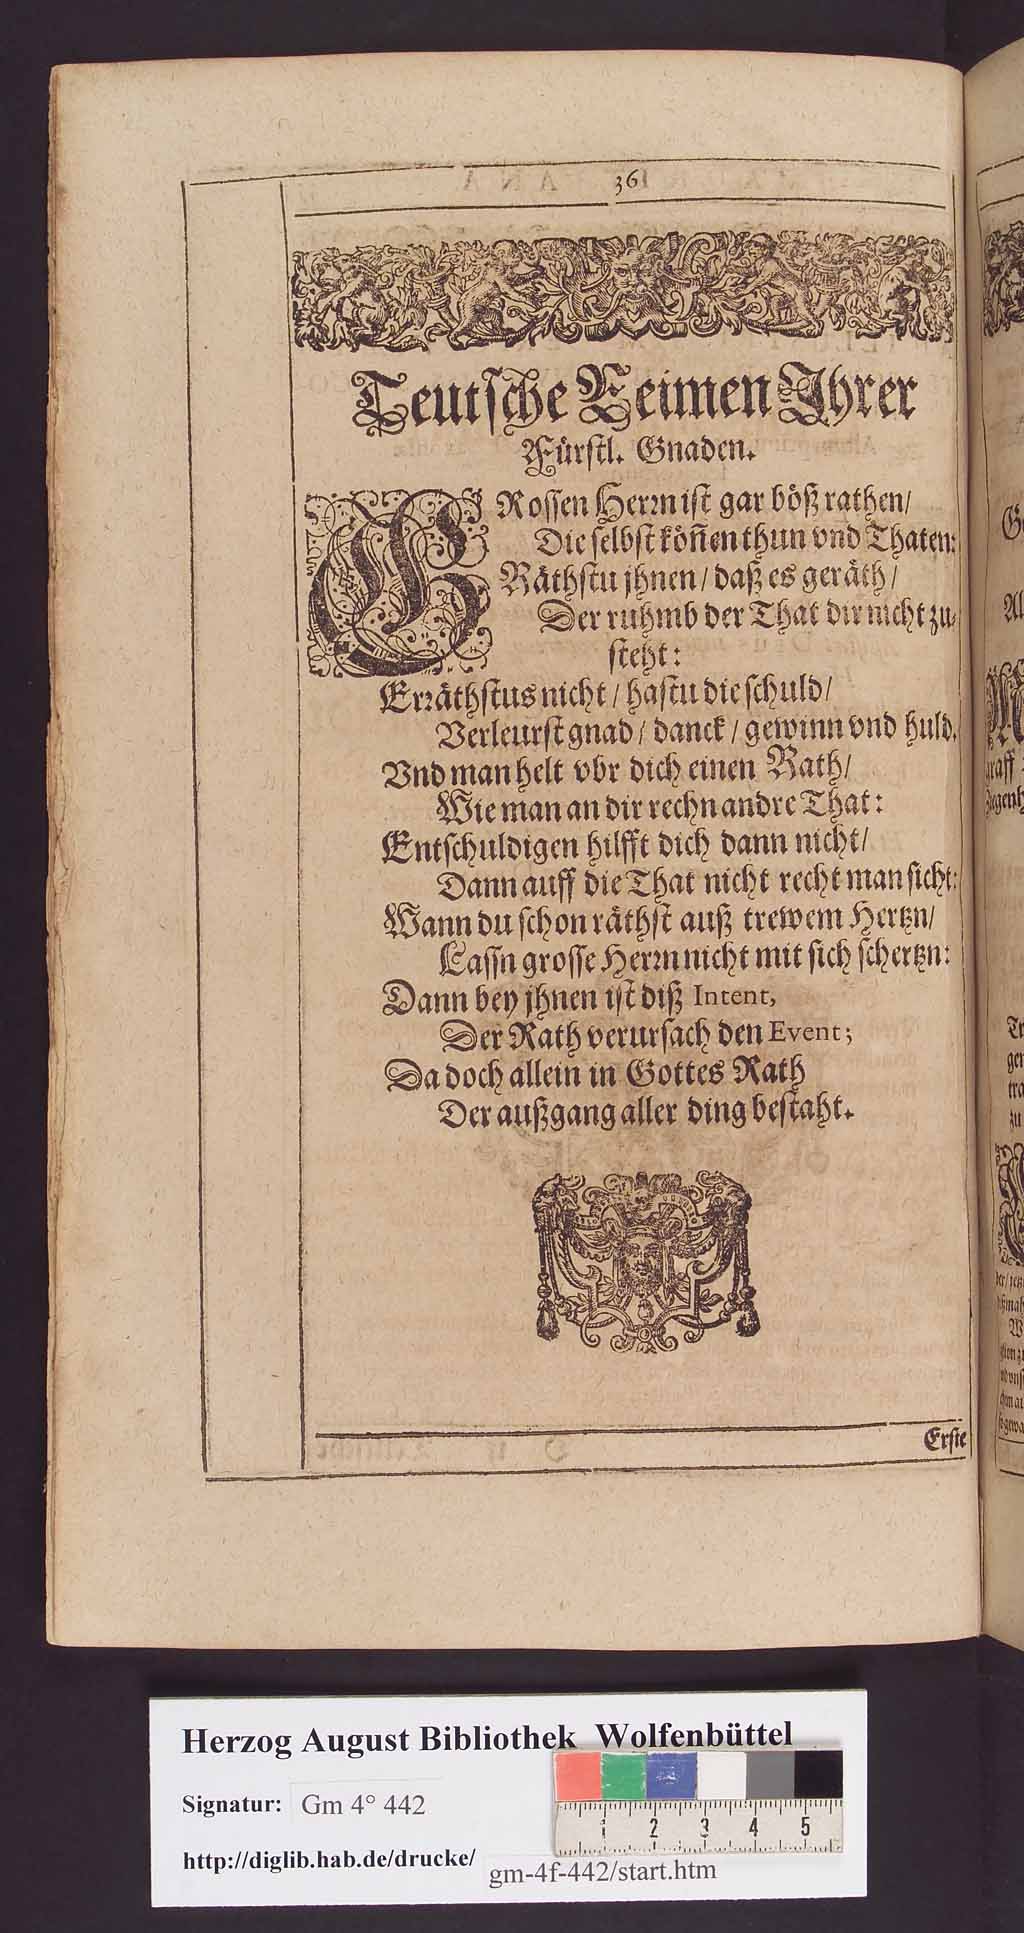 36
Teutsche Reimen Ihrer
Fürstl. Gnaden.
GRossen Herrn ist gar böß rathen/
Die selbst köñen thun vnd Thaten:
Räthstu jhnen/ daß es geräth/
Der ruhmb der That dir nicht zu-
steht:
Erräthstus nicht/ hastu die schuld/
Verleurst gnad/ danck/ gewinn vnd huld.
Vnd man helt vbr dich einen Rath/
Wie man an dir rechn andre That:
Entschuldigen hilfft dich dann nicht/
Dann auff die That nicht recht man sicht:
Wann du schon räthst auß trewem Hertzn/
Lassn grosse Herrn nicht mit sich schertzn:
Dann bey jhnen ist diß Intent,
Der Rath verursach den Event;
Da doch allein in Gottes Rath
Der außgang aller ding bestaht.
Erste
Herzog August Bibliothek Wolfenbüttel
Signatur: Gm 4° 442
1 2 3 4 5
http://diglib.hab.de/drucke/ gm-4f-442/start.htm